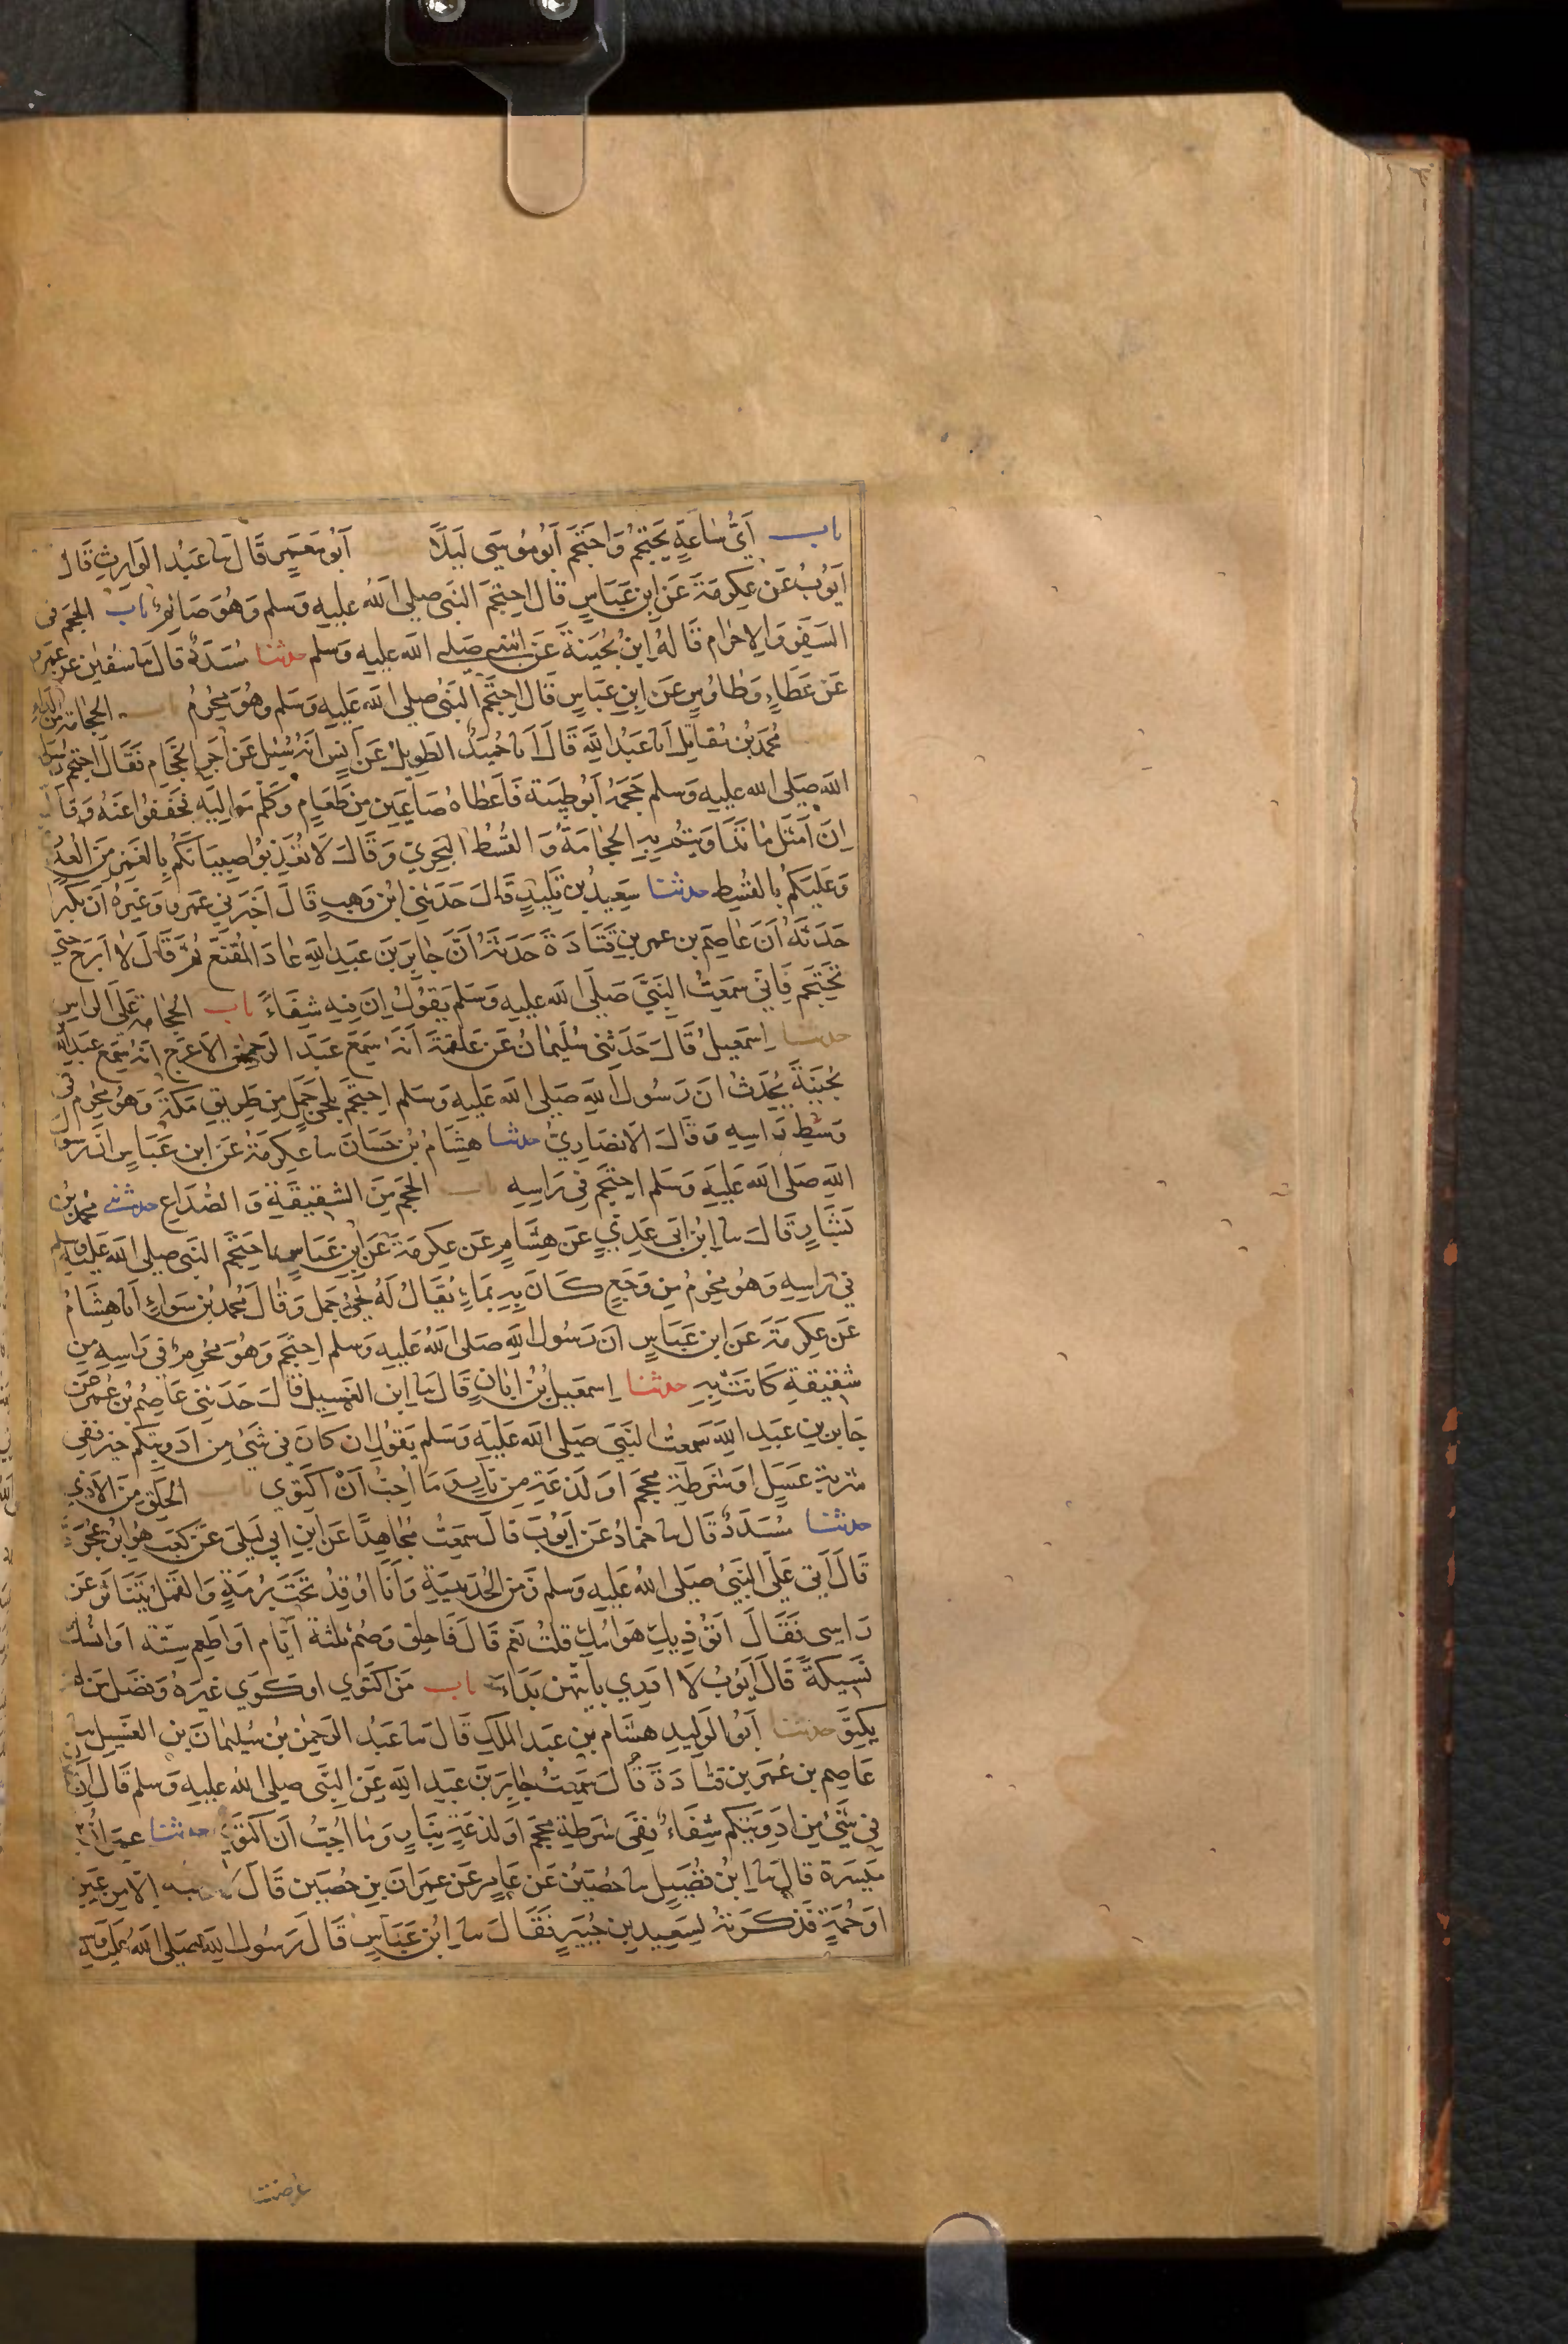 باب أَيَّ سَاعَةٍ يَحْتَجِمُ وَاحْتَجَمَ أَبُو مُوسَى لَيْلًا أَبُو مَعْمَرٍ قَالَ نا عَبْدُ الْوَارِثِ قَالَ
أَيُّوبُ عَنْ عِكْرِمَةَ عَنِ ابْنِ عَبَّاسٍ قَالَ احْتَجَمَ النَّبِيُّ صلى الله عليه وسلم وَهُوَ صَائِمٌ باب الحجم في
السَّفَرِ وَالاِحْرَامِ قَالَهُ ابْنُ بُحَيْنَةَ عَنِ النبي صلى الله عليه وسلم حدثنا مُسَدَّدٌ قَالَ نا سُفْيٰن عَنْ عَمْرٍو
عَنْ عَطَاءٍ وَطَاوُسٍ عَنِ ابْنِ عَبَّاسٍ قَالَ احْتَجَمَ النَّبِيُّ صلى الله عَلَيه وَسَلم وَهُوَ مُحْرِمٌ باب الحجامة من الداء
حدثنا مُحَمَّدُ بْنُ مُقَاتِلٍ أنا عَبْدُ اللهِ قَالَ أنا حُمَيْدٌ الطَّوِيلُ عَنْ أَنَسٍ أَنَّهُ سُئِلَ عَنْ أَجْرِ الْحَجَّامِ فَقَالَ احْتَجَمَ رسول
اللهِ صَلى الله عليه وسلم حَجَمَهُ أَبُو طَيْبَةَ فَأَعْطَاهُ صَاعَيْنِ مِنْ طَعَامٍ وَكَلَّمَ مَوَالِيَهِ فخَفَّفُوا عَنْهُ وَقَالَ
إِنَّ أَمْثَلَ مَا تَدَاوَيْتُمْ بِهِ الْحِجَامَةُ وَالْقُسْطُ الْبَحْرِيُّ وَقَالَ لَا تُعَذِّبُوا صِبْيَانَكُمْ بِالْغَمْزِ مِنَ الْعُذْ
وَعَلَيْكُمْ بِالقُسْطِ حدثنا سَعِيدُ بْنُ تَلِيدٍ قَالَ حَدَّثَنِي ابْنُ وَهْبٍ قَالَ أَخْبَرَنِي عَمْرٌو وَغَيْرُهُ أَنَّ بُكَيْرًا
حَدَّثَهُ أَنَّ عَاصِمَ بن عمر بن قَتَادَةَ حَدَّثَهُ أَنَّ جَابِرَ بْنَ عَبْدِ اللهِ عَادَ الْمُقَنَّعَ ثُمَّ قَالَ لَا أَبْرَحُ حَتَّى
تَحْتَجِمَ فَإِنِّي سَمِعْتُ النَّبِيَّ صَلَّى الله عليه وَسَلم يَقُولُ إِنَّ فِيهِ شِفَاءً باب الحجامة عَلَى الراس
حدثنا إِسْمٰعِيلُ قَالَ حَدَّثَنِي سُلَيْمَانُ عَنْ عَلْقَمَةَ أَنَّهُ سَمِعَ عَبْدَ الرَّحْمٰنِ الأَعْرَجَ أَنَّهُ سَمِعَ عَبْدَ الله
بُحَيْنَةَ يُحَدِّثُ أنَّ رَسُولَ اللهِ صَلى الله عَلَيه وسَلم احْتَجَمَ بِلَحْيِ جَمَلٍ مِنْ طَرِيقِ مَكَّةَ وَهُوَ مُحْرِمٌ في
وَسْطِ رَاسِهِ وَقَالَ الأَنْصَارِيُّ حدثنا هِشَامُ بْنُ حَسَّانَ نا عِكْرِمَةُ عَنِ ابْنِ عَبَّاسٍ أنَّ رسول
اللهِ صَلى الله عَلَيْهِ وَسَلم احْتَجَمَ فِي رَاسِهِ باب الْحَجْمِ مِنَ الشَّقِيقَةِ وَالصُّدَاعِ حدثني محمد بن
بَشَّارٍ قَالَ نا ابْنُ أَبِي عَدِيٍّ عَنْ هِشَامٍ عَنْ عِكْرِمَةَ عَنِ ابْنِ عَبَّاسٍ احْتَجَمَ النَّبِيُّ صلى الله عَليه وسلم
فِي رَاسِهِ وَهُوَ مُحْرِمٌ مِنْ وَجَعٍ كَانَ بِهِ بِمَاءٍ يُقَالُ لَهُ لَحْيُ جَمَلٍ وَقَالَ مُحَمَّدُ بْنُ سَوَاءٍ أنا هِشَامُ
عَنْ عِكْرِمَةَ عَنِ ابْنِ عَبَّاسٍ أنَّ رَسُولَ اللهِ صَلى اللهُ عَلَيه وسلم احْتَجَمَ وَهُوَ مُحْرِمٌ فِي رَاسِهِ مِنْ
شَقِيقَةٍ كَانَتْ بِهِ حدثنا إِسْمٰعِيلُ بْنُ أَبَانٍ قَالَ نا ابن الغَسِيلِ قَالَ حَدَّثَنِي عَاصِمُ بْنُ عُمَرَ عَن
جَابِرِ بْنِ عَبْدِ اللهِ سَمِعْتُ النَّبِيَّ صَلى الله عَلَيه وَسَلم يَقُولُ إنْ كَانَ فِي شَيْءٍ مِنْ أَدْوِيَتِكُمْ خَيْرٌ فَفِي
شربة عَسَلٍ أَوْ شَرْطَةِ مِحْجَمٍ أَوْ لَذْعَةٍ مِنْ نَارٍ وَمَا أُحِبُّ أَنْ أَكْتَوِي باب الحلق من الأذى
حدثنا مُسَدَّدٌ قَالَ نا حَمَّادٌ عَنْ أَيُّوبَ قَالَ سَمِعْتُ مُجَاهِدًا عَنِ ابْنِ أَبِي لَيْلَى عَنْ كَعْبٍ هُوَ ابْنُ عُجْرَةَ
قَالَ أَتَى عَلَى النَّبِيُّ صَلى اللهُ عَلَيه وسلم زَمَنَ الْحُدَيْبِيَةِ وَأَنَا أُوقِدُ تَحْتَ بُرْمَةٍ وَالقَمْلُ يَتَنَاثَرُ عَنْ
رَاسِي فَقَالَ أَتُؤْذِيكَ هَوَامُّكَ قُلْتُ نَعَمْ قَالَ فَاحْلِقْ وَصُمْ ثَلٰثَةَ أَيَّامٍ أَوْ أَطْعِمْ سِتَّةً أَوِ انْسُكْ
نَسِيكَةً قَالَ أَيُّوبُ لَا أَدْرِي بِأَيَّتِهِنَّ بَدَأَ باب مَنِ اكْتَوَى أَوْ كَوَى غَيْرَهُ وَفَضْلِ مَنْ لم
يَكْتَوِ حدثنا أَبُو الْوَلِيدِ هِشَامُ بْنُ عَبْدِ الْمَلِكِ قَالَ نا عَبْدُ الرَّحْمٰنِ بْنُ سُلَيْمَانَ بْنِ الْغَسِيلِ نا
عَاصِمُ بن عُمَرَ بن قَتَادَةَ قَالَ سَمِعْتُ جَابِرَ بْنَ عَبْدِ اللهِ عَنِ النَّبِي صلى الله عليه وسلم قَالَ إنْ كان
فِي شَيْءٍ مِنْ أَدْوِيَتِكُمْ شِفَاءٌ فَفِي شَرْطَةِ مِحْجَمٍ أَوْ لَذْعَةٍ بِنَارٍ وَمَا أُحِبُّ أَنْ أَكْتَوِيَ حدثنا عِمْرَانُ بن
مَيْسَرَةَ قَالَ نا ابْنُ فُضَيْلٍ نا حُصَيْنٌ عَنْ عَامِرٍ عَنْ عِمْرَانَ بْنِ حُصَيْنٍ قَالَ لا رقية إلا من عين
أَوْ حُمَةٍ فَذَكَرْتُهُ لِسَعِيدِ بْنِ جُبَيْرٍ فَقَالَ نا ابْنُ عَبَّاسٍ قَالَ رَسُولُ اللهِ صَلى اللهُ عَلَيه وسلم
عرضت